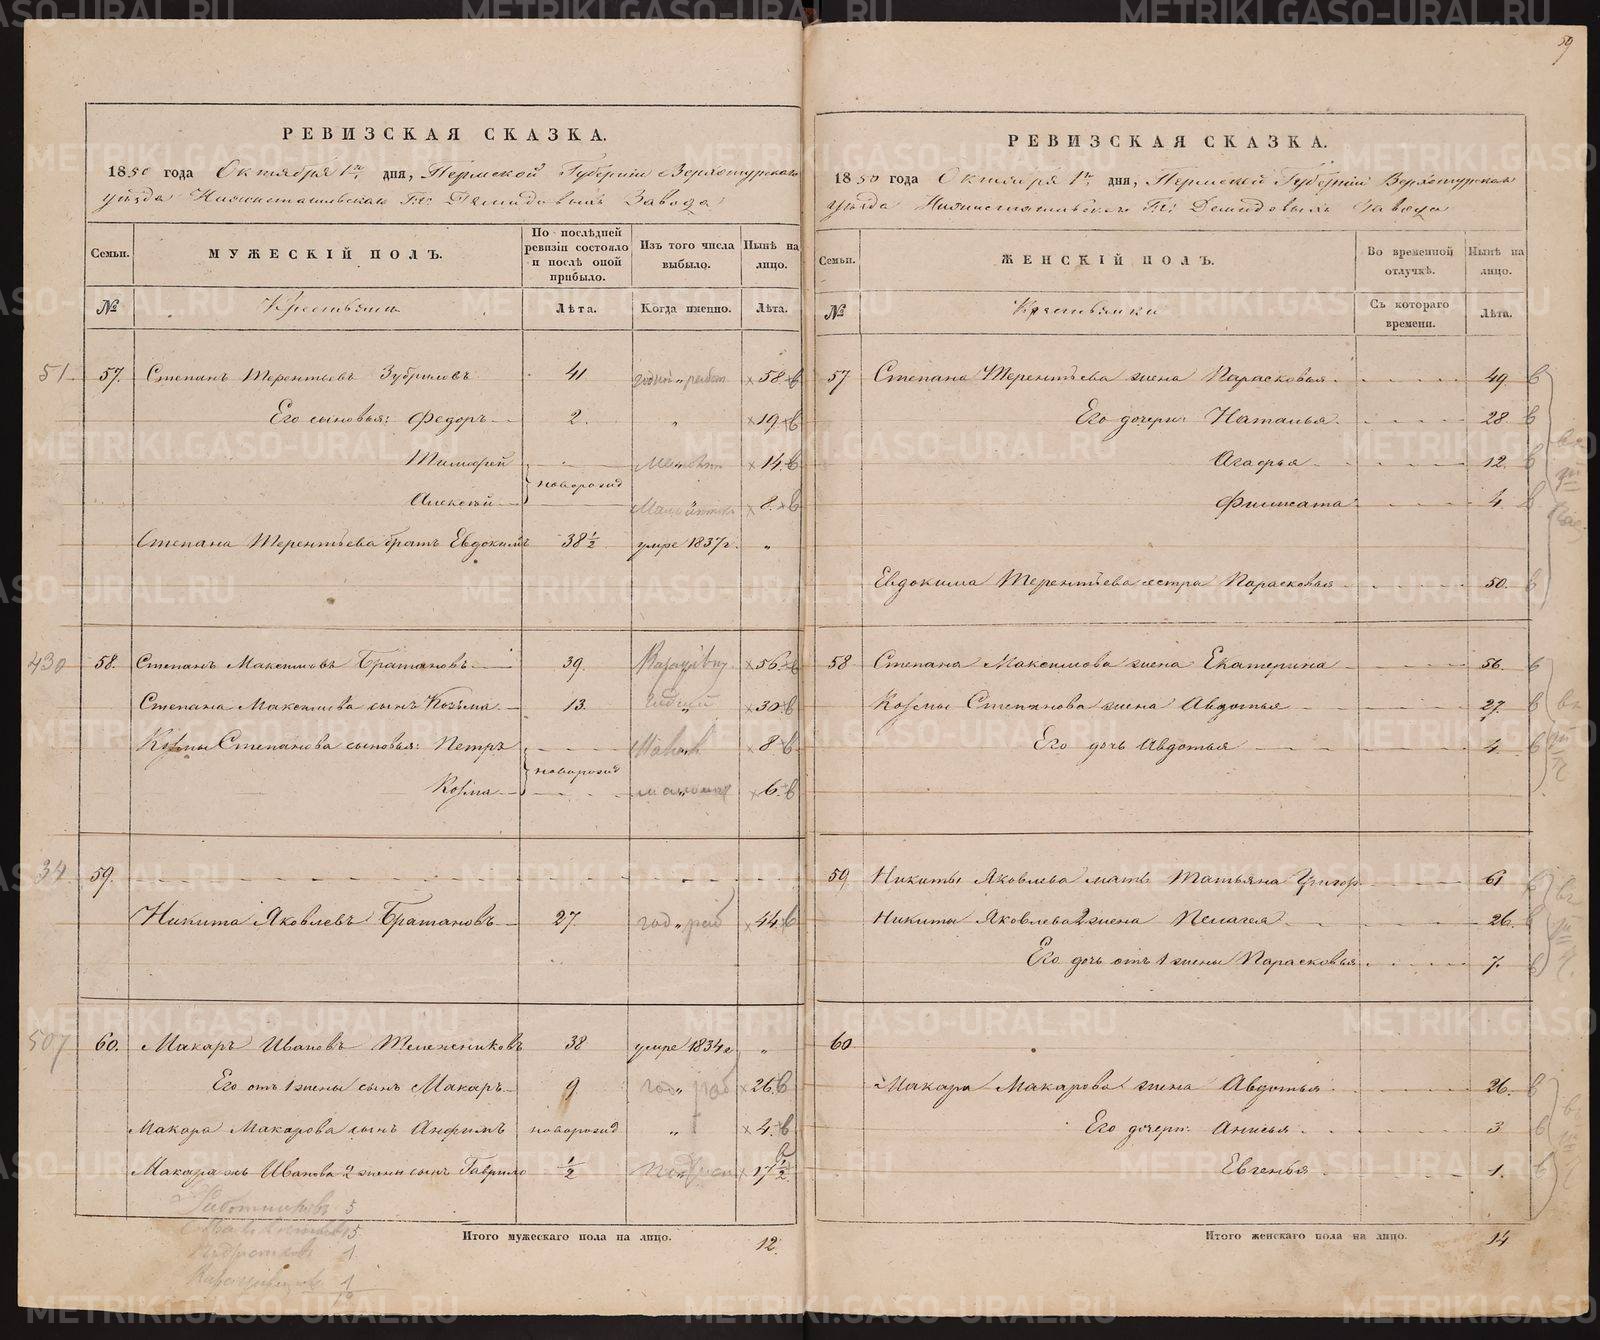 59
РЕВИЗСКАЯ СКАЗКА.
1850 года Октября 1го дня, Пермской Губернiи Верхотурскаго
уѣзда Нижнетагильскаго Гг: Демидовыхъ Завода
Семьи. МУЖЕСКIЙ ПОЛЪ. По послѣдней ревизiи состояло и послѣ оной прибыло. Изъ того числа выбыло. Нынѣ на лицо.
№ Крестьяне Лѣта. Когда именно. Лѣта.
51 57. Степанъ Терентьевъ Зубриловъ 41 годный работ 58 в
Его сыновья: Федоръ 2. " 19 в
Тимофей новорожд 14 в
Алексѣй 8 в
Степана Терентьева братъ Евдокимъ 38 1/2 умре 1837 г. "
430 58. Степанъ Максимовъ Братановъ 39. 56 в
Степана Максимова сынъ Козьма 13. годный 30 в
Козмы Степанова сыновья: Петръ новорожд 8 в
Козма 6 в
34 59.
Никита Яковлевъ Братановъ 27. год раб 44 в
507 60. Макаръ Ивановъ Тележенковъ 38 умре 1834 г "
Его отъ 1 жены сынъ Макаръ 9 год раб 26 в
Макара Макарова сынъ Анфимъ новорожд " 4 в
Макара жъ Иванова 2 жены сынъ Гаврило 1/2 17 1/2 в
Работниковъ 5
5
Подростковъ 1
1
12
Итого мужескаго пола на лицо. 12.
РЕВИЗСКАЯ СКАЗКА.
1850 года Октября 1го дня, Пермской Губернiи Верхотурскаго
уѣзда Нижнетагильскаго Гг: Демидовыхъ Завода
Семьи. ЖЕНСКIЙ ПОЛЪ. Во временной отлучкѣ. Нынѣ на лицо.
№ Крестьянки Съ котораго времени. Лѣта.
57 Степана Терентьева жена Парасковья 49 в
Его дочери: Наталья 28 в
Агафья 12 в
Филисата 4 в
Евдокима Терентьева сестра Парасковья 50 в
58 Степана Максимова жена Екатерина 56 в
Козмы Степанова жена Авдотья 27 в
Его дочь Авдотья 4 в
59 Никиты Яковлева мать Татьяна Григор. 61 в
Никиты Яковлева 2 жена Пелагея 26 в
Его дочь отъ 1 жены Парасковья 7. в
60
Макара Макарова жена Авдотья 26 в
Его дочери: Анисья 3 в
Евгенья 1. в
Итого женскаго пола на лицо. 14
METRIKI.GASO-URAL.RU